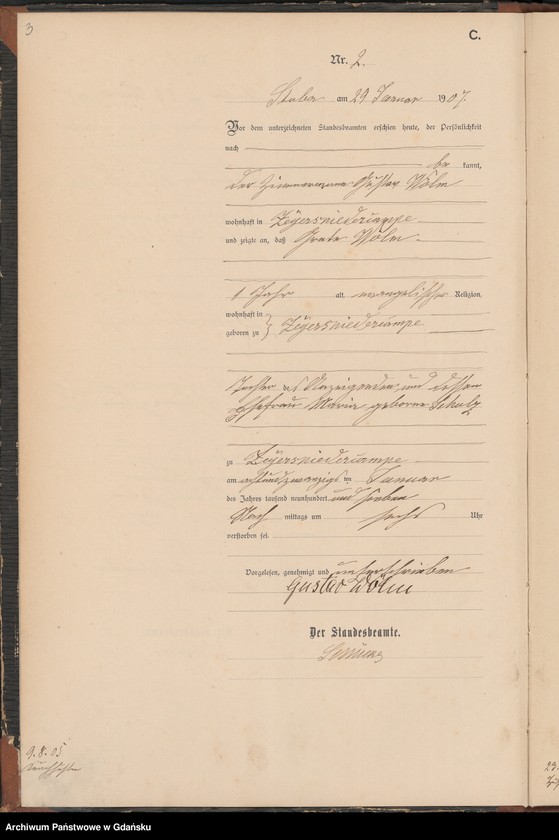 3
C.
Nr. 2.
Stuba am 29 Januar 1907.
Vor dem unterzeichneten Standesbeamten erschien heute, der Persönlichkeit
nach
be kannt,
der Zimmermann Gustav Wölm
wohnhaft in Zeyersniedercampe
und zeigte an, daß Grete Wölm
1 Jahr alt, evangelischer Religion,
wohnhaft in
geboren zu Zeyersniedercampe
Tochter des Anzeigenden und dessen
Ehefrau Maria geborne Schulz
zu Zeyersniedercampe
am achtundzwanzigs ten Januar
des Jahres tausend neunhundert und sieben
Nach mittags um sechs Uhr
verstorben sei.
Vorgelesen, genehmigt und unterschrieben
Gustav Wölm
Der Standesbeamte.
9.8.05
29.
Archiwum Państwowe w Gdańsku